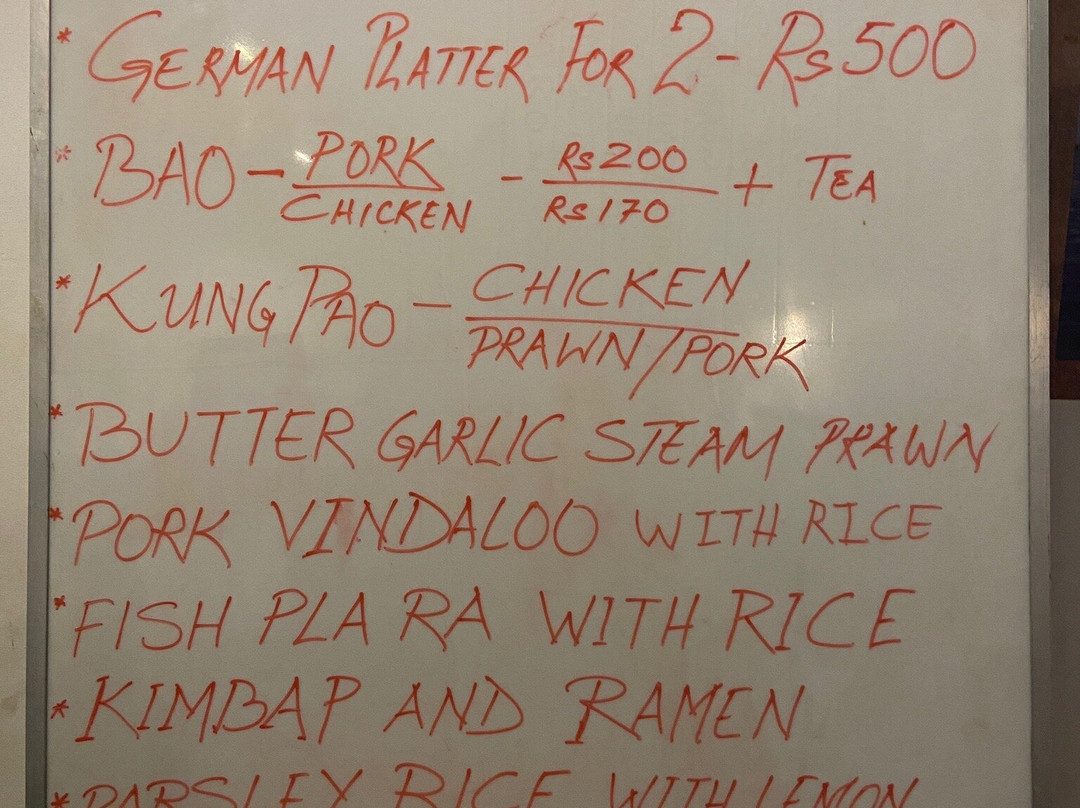 * GERMAN PLATTER FOR 2 - Rs 500
* BAO - PORK / CHICKEN - Rs 200 / Rs 170 + TEA
* KUNG PAO - CHICKEN / PRAWN/PORK
* BUTTER GARLIC STEAM PRAWN
* PORK VINDALOO WITH RICE
* FISH PLA RA WITH RICE
* KIMBAP AND RAMEN
* PARSLEY RICE WITH LEMON